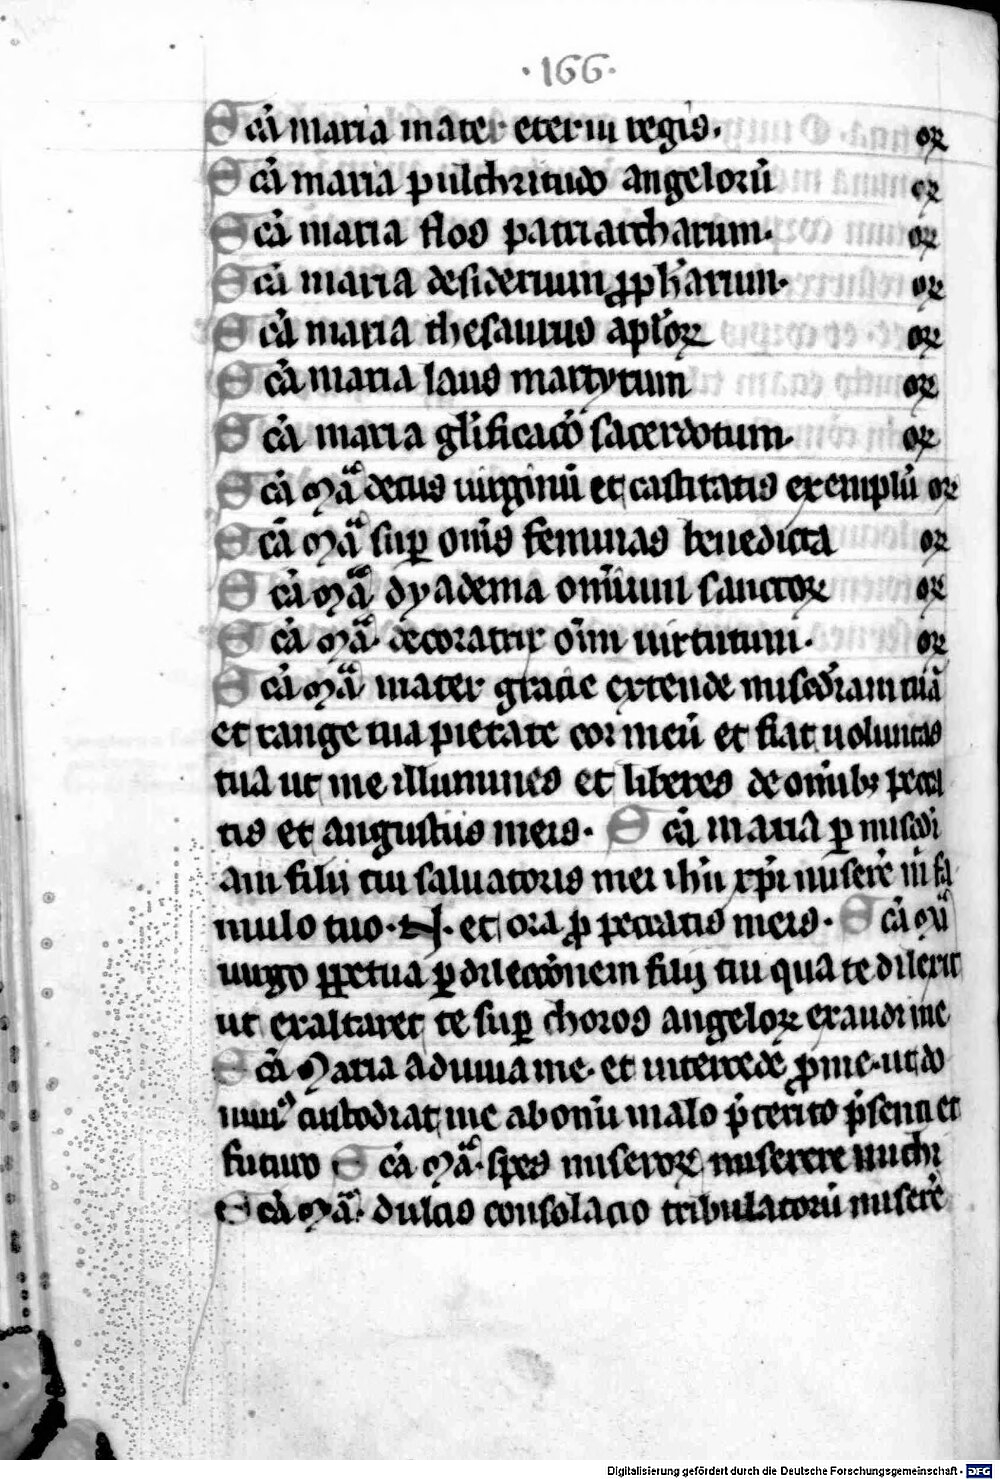 ·166·
Scā maria mater eterni regis. orꝫ
Scā maria pulchritudo angelorū orꝫ
Scā maria flos patriarcharum. orꝫ
Scā maria desiderium ꝓpħarum. orꝫ
Scā maria thesaurus apłoꝝ orꝫ
Scā maria laus martyrum orꝫ
Scā maria gl̄ificacō sacerdotum. orꝫ
Scā mªa decus uirginū et castitatis exemplū orꝫ
Scā mªa suꝑ om̄s feminas benedicta orꝫ
Scā mªa dyadema omīum sanctoꝝ orꝫ
Scā mªa. decoratrix oīm uirtutum. orꝫ
Scā mªa mater gracie extende misedīam tuā
et tange tua pietate cor meū et fiat uoluntas
tua ut me illumines et liberes de omīb; pecca
tis et angustiis meis. Scā maria ꝑ misedi
am filii tui saluatoris mei ihū xpī miserē m̄ fa
mulo tuo. N. et ora ꝓ peccatis meis. Scā mª
uirgo ꝑpetua ꝑ dilecc̄onem filij tui qua te dilexit
ut exaltaret te suꝑ choros angeloꝝ exaudi me
Scā Maria adiuua me. et intercede ꝓ me. ut do
minꝰ custodiat me ab om̄i malo p̄terito p̄senti et
futuro Scā mªa. spes miseroꝝ miserere michi
Scā mªa. dulcis consolacio tribulatorū miserē
Digitalisierung gefördert durch die Deutsche Forschungsgemeinschaft - DFG